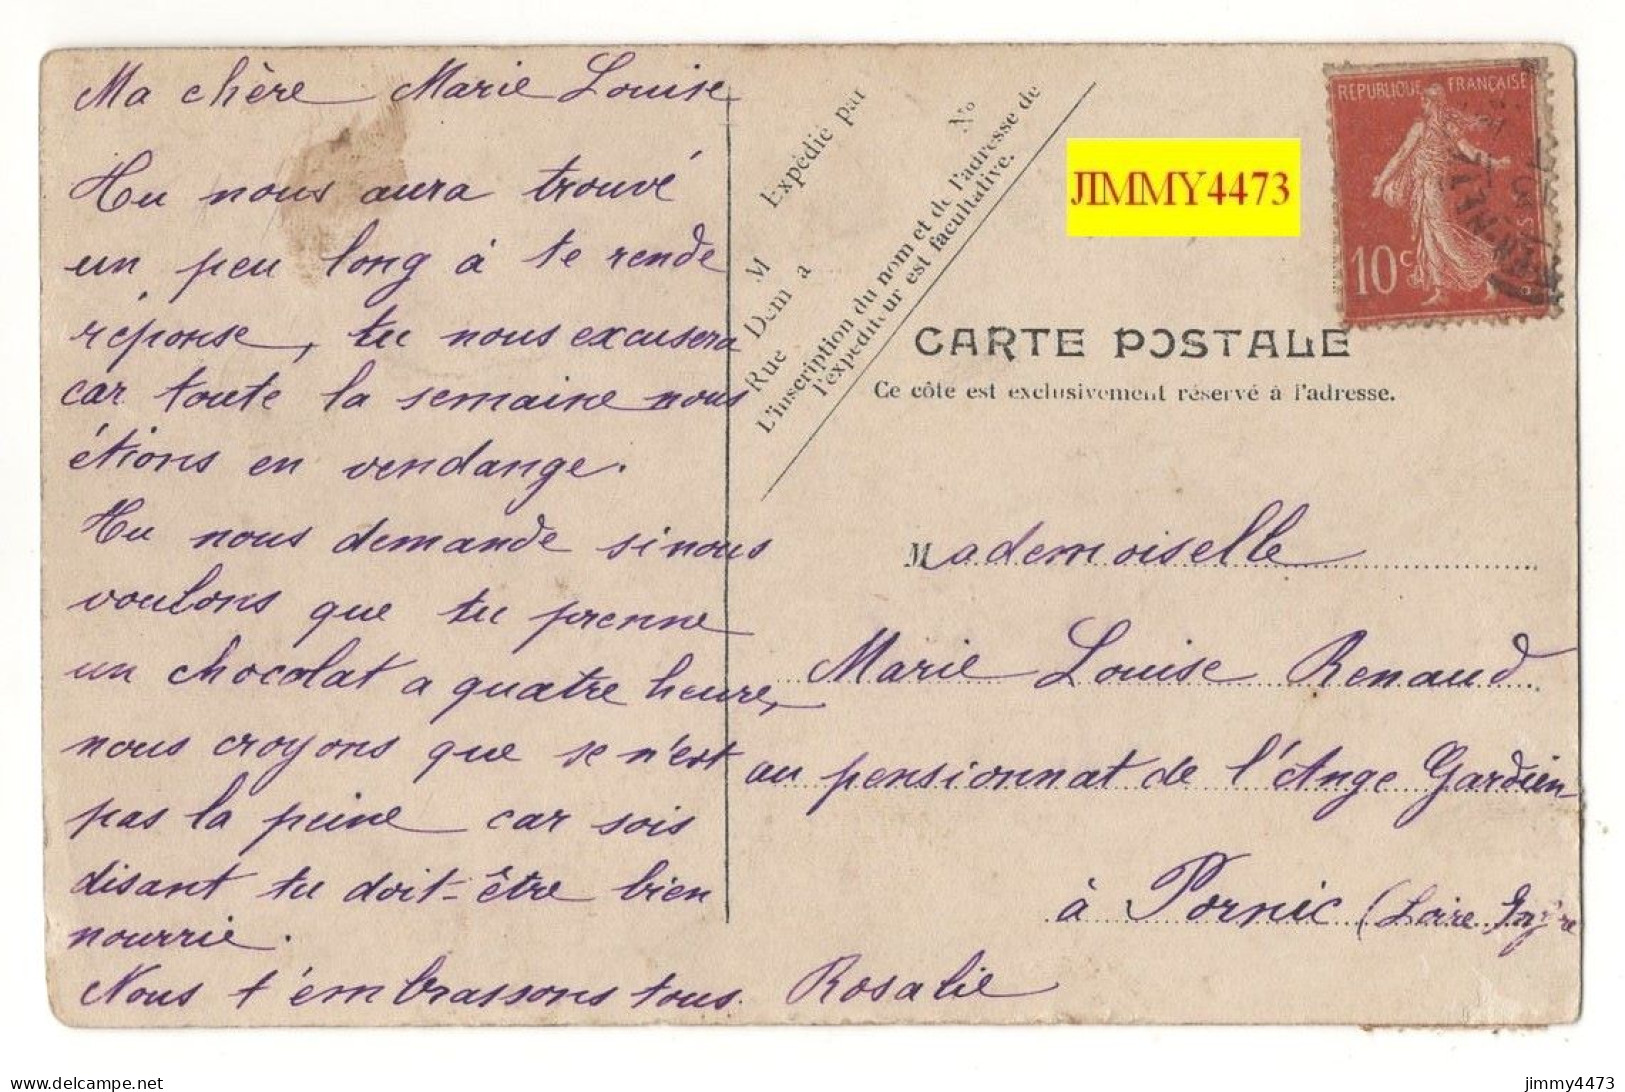 Ma chère Marie Louise
Tu nous aura trouvé
un peu long à te rende
réponse, tu nous excusera
car toute la semaine nous
étions en vendange.
Tu nous demande si nous
voulons que tu prenne
un chocolat a quatre heure,
nous croyons que se n'est
pas la peine car sois
disant tu doit-être bien
nourrie.
Nous t'embrassons tous
Rosalie
Expédié par
M
Dem à
Rue
No
L'inscription du nom et de l'adresse de
l'expéditeur est facultative.
JIMMY4473
REPUBLIQUE FRANÇAISE
10 c
CARTE POSTALE
Ce côte est exclusivement réservé à l'adresse.
Mademoiselle
Marie Louise Renaud
au pensionnat de l'Ange Gardien
à Pornic (Loire Infre
delcampe.net
jimmy4473